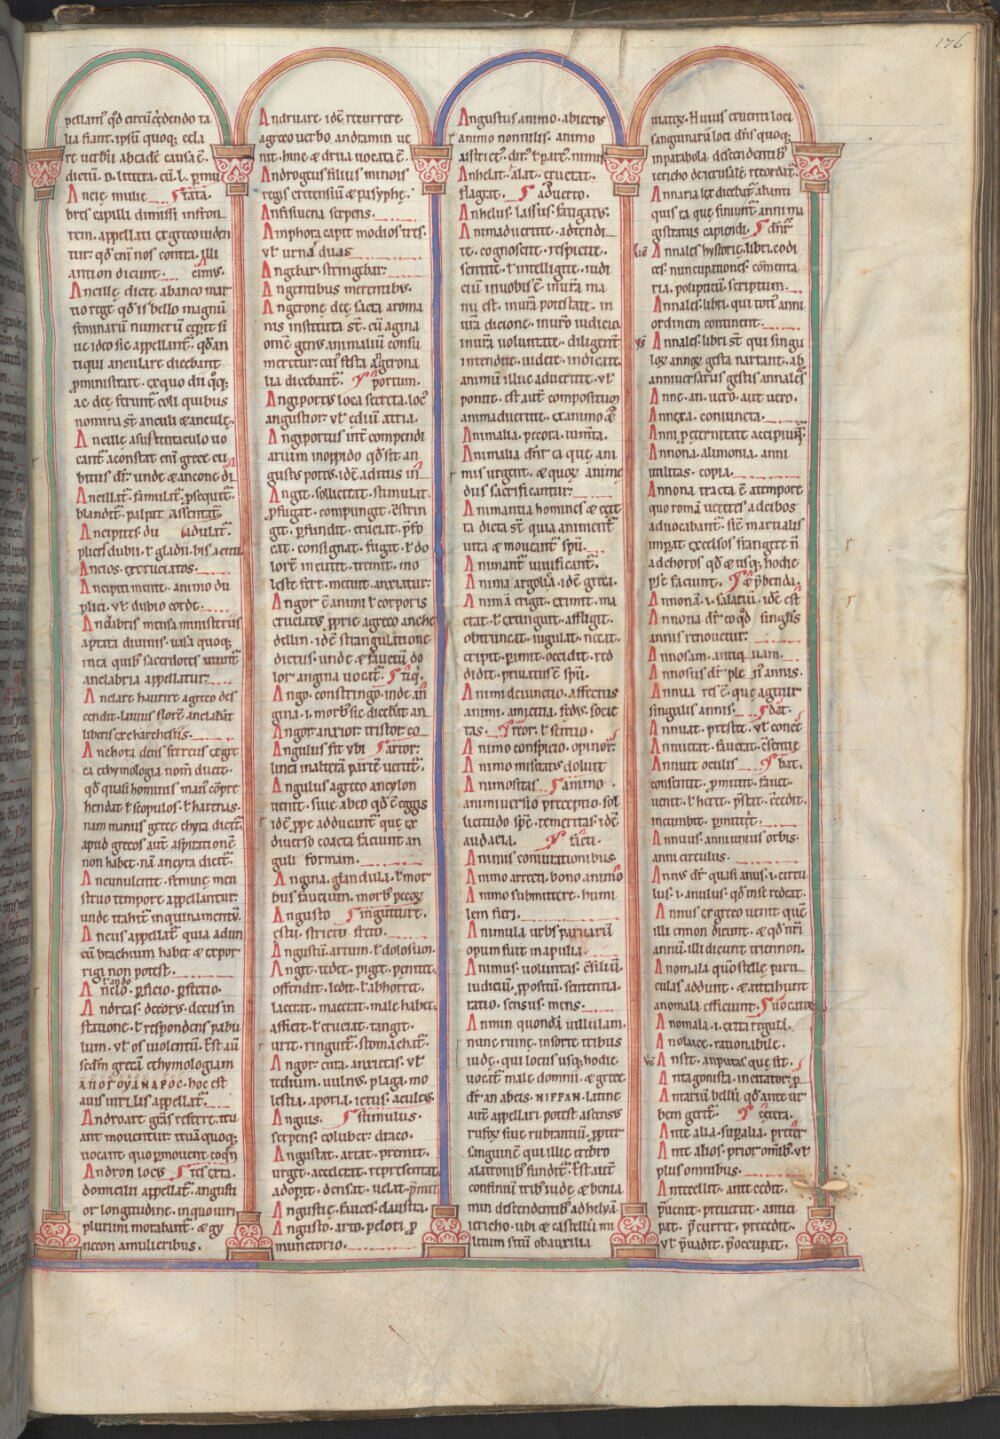 176
pellam᷒ qd̄ circūcidendo ta
lia fiant. ipsū quoq; cela
re uerbū abcadē causa ē.
dictū. D. littera. cū. L. pmu
Ancię mulie tata.
bres capilli dimissi infron
tem. appellati exgreco uiden
tur. qd̄ eni nos contra. illi
antion dicunt. eims.
Ancillę dictę abanco mar
tio rege qd̄ is bello magnū
feminarū numerū cepit si
ue ideo sic appellant. qd̄ an
tiqui anculare dicebant
pministrare. exquo dii qq;
ac deę ferunt coli quibus
nomina st̄ anculi & anculę.
Ancillę asustentaculo uo
cant̄ aconstat eni grece cu
bitus dr̄. unde & ancone di
Ancillat̄. famulat̄. psequit̄.
blandit̄. palpat assentat̄.
Ancipites du adulat̄.
plices dubii. ł gladii. bis acuti
Ancios. excruciatos.
Ancipiti menti. animo du
plici. vł dubio corde.
Anclabris mensa ministeriis
aptata diuinis. uasa quoq;
inea quib; sacerdotes utunt̄
anclabria appellatur.
Anclare haurire agreco des
cendit. lauius florē anclabat
liberi excharchesiis.
Anchora dens ferreus exgre
ca ethymologia nom̄ ducit.
qd̄ quasi hominis man᷒ cōpre
hendat ł scopulos. ł harenas.
nam manus grece chyra dicit̄.
apud grecos aut̄ aspirationē
non habet. nā ancyra dicit̄.
Anculente. feminę men
struo tempore appellantur.
unde trahit̄ inquinamentū.
Ancus appellat̄ quia adun
cū brachium habet & expor
rigi non potest.
Anelo. pficio. pfectio.
Andreas. decor᷒. decus in
statione. ł respondens pabu
lum. vł os uiolentū. Est aū
scdm̄ grecā ethymologiam
ΑΠΟΓΟΥΑΝΔΡΟC. hoc est
auis uirilis appellat̄.
Androare grās referre. tru
ant mouentur. truā quoq;
uocant quo pmouent coqn̄
Andron locus tis extra.
domicilii appellat̄. angusti
or longitudine. inquo uiri
plurimi morabant̄. & gy
neceon amulieribus.
Andruare. idē recurrere
agreco uerbo andramin ue
nit. hinc & drua uocata ē.
Androgeus filius minois
regis cretensiū & pasyphę.
Anfisiuena serpens.
Amphora capit modios tres.
vł urnā duas.
Angebar. stringbar.
Angentibus merentibus.
Angerone deę sacra aroma
nis instituta st̄. cū agina
omē genus animaliū consu
meretur. cuius festa angerona
lia dicebant̄. portum.
Angiportus loca secreta. loc᷒
angustior. vł ediū atria.
Angiportus int̄ compendi
arium inoppido qd̄ sit an
gustis portis. idē aditus in
Angit. sollicitat. stimulat
pfugat. compungit. cstrin
git. pfundit. cruciat. pfo
cat. consignat. fugit. ł do
lorē incutit. tremit. mo
leste fert. metuit. anxiatur.
Angor ē animi ł corporis
cruciat᷒. pprie agreco anche
dellin. idē strangulatione
dictus. unde & fauciū do
lor angina uocat̄.
Ango. constringo. inde an
gina. i. morb᷒ sic dicebat an
Angor. anxior. tristor. eo
Angulus fit vbi artor.
linea inalterā partē uertit̄.
Angulus agreco ancylon
uenit. siue abeo qd̄ ē eggis
idē ppe adducant̄ quę ex
diuerso coacta faciunt an
guli formam.
Angina. glandula. ł mor
bus faucium. morb᷒ pecor᷒
Angusto inguiture.
esui. stricto. ferro.
Angustū. artum. ł dolosum.
Angit. tedet. piget. penitet.
offendit. ledit. ł abhorret.
lacerat. macerat. male habet.
afficit. ł cruciat. tangit.
urit. ringunt̄. stomachat̄.
Angor. cura. anxietas. vł
tedium. uulnus. plaga. mo
lestia. aporia. ictus. aculeus.
Anguis. stimulus.
serpens. coluber. draco.
Angustat. artat. premit.
urget. accelerat. representat.
adopit. densat. uelat. pmit.
Angustię. fauces. claustra.
Angusto. arto. peloti. p
munctorio.
Angustus animo. abiectus
animo nonnilis. animo
astrict᷒. dur᷒. ł parc᷒. nimis
Anhelat. alat. cruciat.
flagrat. aduerto.
Anhelus. lassus. fatigat᷒.
Animaduertite. adtendi
te. cognoscite. respicite.
sentite. ł intelligite. iudi
ciū inuobis ē. inurā ma
nu est. inurā potestate. in
urā dicione. inuro iudicio
inurā voluntate. diligent̄
intendite. uidete. indicate.
animū illuc aduertite. vł
ponite. est aut̄ compositum
animaduertite. exanimo &
Animalia. pecora. iumta.
Animalia dn̄r ea que ani
mis urgent. & quoz anime
diis sacrificantur.
Animantia homines & cete
ra dicta st̄ quia animent̄
uita & moueant̄ spū.
Animant̄ uiuificant̄.
Anima argolica. idē greca.
Animā erigit. extimit. ma
ctat. ł extinguit. affligit.
obtruncat. iugulat. necat.
eripit. pimit. occidit. red
didit. priuatus ē spū.
Animi deiunctio. affectus
animi. amicitia. fedus. socie
tas. rtor. ł sentio.
Animo conspicio. opinor.
Animo miserat᷒. doluit
Animositas animo.
animiuersio. preceptio. sol
licitudo. spē. temeritas. idē
audacia. facti.
Animis comurationibus.
Animo arrecti. bono animo
Animo submittere. humi
lem fieri.
Animula urbs paruariū
opum fuit inapulia.
Animus. voluntas. csiliū.
iudiciū. ppositū. sententia.
ratio. sensus. mens.
Anmin quondā uillulam.
nunc ruine. insorte tribus
iudę. qui locus usq; hodie
uocat̄ male domni. & grece
dr̄. an abcis. ΝΙΡΡΑΝ. latine
aut̄ appellari potest ascensus
ruffoz siue rubrantiū. ppter
sanguinē qui illic crebro
alatronib; fundit̄. Est aut̄
confiniū trib᷒ iudę & benia
min descendentib᷒ adhelyā
iericho. ubi & castellū mi
litum situ᷒ obauxilia
uiatoz. Huius cruenti loci
sanguinarii loci dn̄s quoq;
inparabola descendentib᷒
iericho deierusalē recordat̄.
Annaria lex dicebat̄ abanti
quis ea que finiunt̄ anni ma
gistratus capiendi. dn̄r
Annales hystorię. libri. codi
ces. nuncupationes. comenta
ria. politicū scriptum.
Annales libri. qui toti᷒ anni
ordinem continent.
Annales. libri st̄ qui singu
loz annoz gesta narrant. ab
anniuersariis gestis annales
Anne. an. uero. aut uero.
Annexa. coniuncta.
Anni peternitate accipiunt̄.
Annona. alimonia. anni
utilitas. copia.
Annona tracta ē atempore
quo romā ueteres adcibos
aduocabant̄. sic martialis
impat excelsos frangere n̄
adchoros qd̄ & usq; hodie
pse faciunt. & phenda.
Annonā. i. salariū. idē est
Annona dr̄ eo qd̄ singlis
annis renouetur.
Annosam. antiquam.
Annosus dr̄ ple n᷒ annis.
Annua res ē. quę agitur
singulis annis. dat.
Annuat. prestet. vł concet
Annuerat. fauerat. csentit
Annuit oculis bat.
consentit. pmittit. fauet.
uenit. ł heret. pstat. cecedit.
incumbit. pmittit.
Annuus. anniuius orbis.
anni circulus.
Annus dr̄ quasi anus. i. circu
lus. i. anulus. qd̄ inse redeat.
Annus exgreco uenit quē
illi ennon dicunt. & qd̄ nr̄i
annū. illi dicunt triennon.
Anomala quo stelle parti
culas addunt. & attrahunt
anomala efficiunt. uocatur
Anomala. i. extra regulā.
Anolace. rationabile.
An sit. anputas que sit.
Antagonista. incitator. p
Antariū bellū qd̄ ante ur
bem gerit̄. cetera.
Ante alia. supalia. preter
Ante alios. prior omib᷒. vł
plus omnibus.
Antecellit. ante cedit.
puenit. preuertit. antici
pat. pcurrit. precedit.
vł puadit. poccupat.